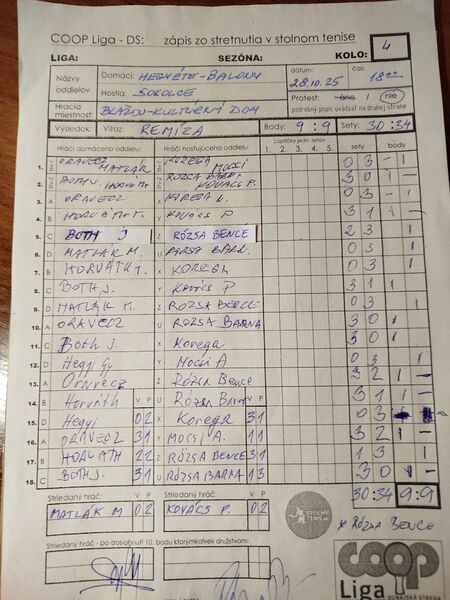 COOP Liga - DS: zápis zo stretnutia v stolnom tenise
LIGA: SEZÓNA: KOLO: 4
Názvy oddielov Domáci: HEGYÉTE-BALONY dátum: 28.10.25 čas: 18:00
Hostia: SOKOLCE Protest: áno / nie
podrobný popis uvádzať na druhej strane
Hracia miestnosť: BLAŽOV-KULTURNY DOM
Výsledok: Víťaz: REMÍZA Body: 9 : 9 Sety: 30:34
Hráči domáceho oddielu: Hráči hosťujúceho oddielu: Lopтičky jedn. setov: sety body
1. 2. 3. 4. 5.
1. ORAVECZ MATLÁK KOREGA MOCSI 0 3 - 1
2. BOTH J. HORVÁTH T. RÓZSA BARNA KOVÁCS P. 3 0 1
3. A ORAVECZ X KOREGA 0 3 1
4. B HORVÁTH T. Y KOVÁCS P 3 1 1
5. C BOTH J Z RÓZSA BENCE 2 3 1
6. D MATLÁK M. U RÓZSA BARN. 0 3 1
7. B HORVÁTH T. X KOREGA 0 3 1
8. C BOTH J. Y KOVÁCS P 3 1 1
9. D MATLÁK M. Z RÓZSA BENCE 0 3 1
10. A ORAVECZ U RÓZSA BARNA 3 0 1
11. C Both J. X Korega 3 0 1
12. D Hegyi Gy Y Mocsi A 0 3 1
13. A Oravecz Z Rózsa Bence 3 2 1 -
14. B Horváth V P U Rózsa Barna V P 3 1 1
15. D Hegyi 0 2 X Korega 3 1 0 3
16. A ORAVECZ 3 1 Y MOCSI A. 1 1 3 2 1 -
17. B HORVÁTH 2 2 Z RÓZSA BENCE 3 1 1 3 1
18. C BOTH J. 3 1 U RÓZSA BARNA 1 3 3 0 1 -
Striedaný hráč: V P Striedaný hráč: V P 30:34 9:9
MATLÁK M 0 2 KOVÁCS P. 0 2
* RÓZSA BENCE
STOLNÝ TENIS
Striedaný hráč - po dosiahnutí 10. bodu ktorýmkoľvek družstvom:
coop
Liga
DUNAJSKÁ STREDA